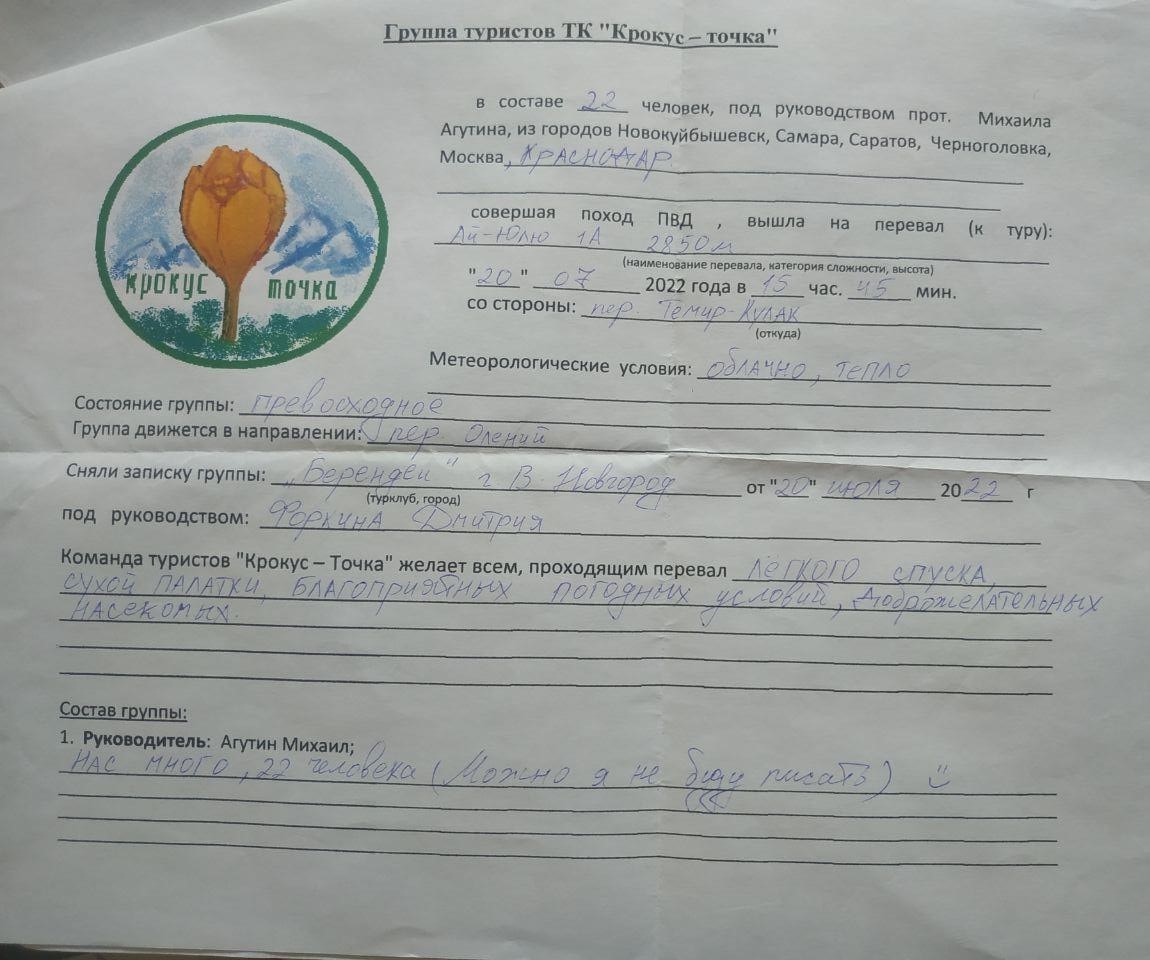 Группа туристов ТК "Крокус – точка"
крокус точка
в составе 22 человек, под руководством прот. Михаила
Агутина, из городов Новокуйбышевск, Самара, Саратов, Черноголовка,
Москва, КРАСНОДАР
совершая поход ПВД , вышла на перевал (к туру):
Ай-Юлю 1А 2850м
(наименование перевала, категория сложности, высота)
"20" 07 2022 года в 15 час. 45 мин.
со стороны: пер. Темир-Кулак
(откуда)
Метеорологические условия: облачно, тепло
Состояние группы: превосходное
Группа движется в направлении: пер. Олений
Сняли записку группы: „Берендеи" г В. Новгород от "20" июля 2022 г
(турклуб, город)
под руководством: Форкина Дмитрия
Команда туристов "Крокус – Точка" желает всем, проходящим перевал ЛЕГКОГО СПУСКА,
СУХОЙ ПАЛАТКИ, БЛАГОПРИЯТНЫХ ПОГОДНЫХ УСЛОВИЙ, ДОБРОЖЕЛАТЕЛЬНЫХ
НАСЕКОМЫХ.
Состав группы:
1. Руководитель: Агутин Михаил;
НАС МНОГО, 22 человека (Можно я не буду писать)